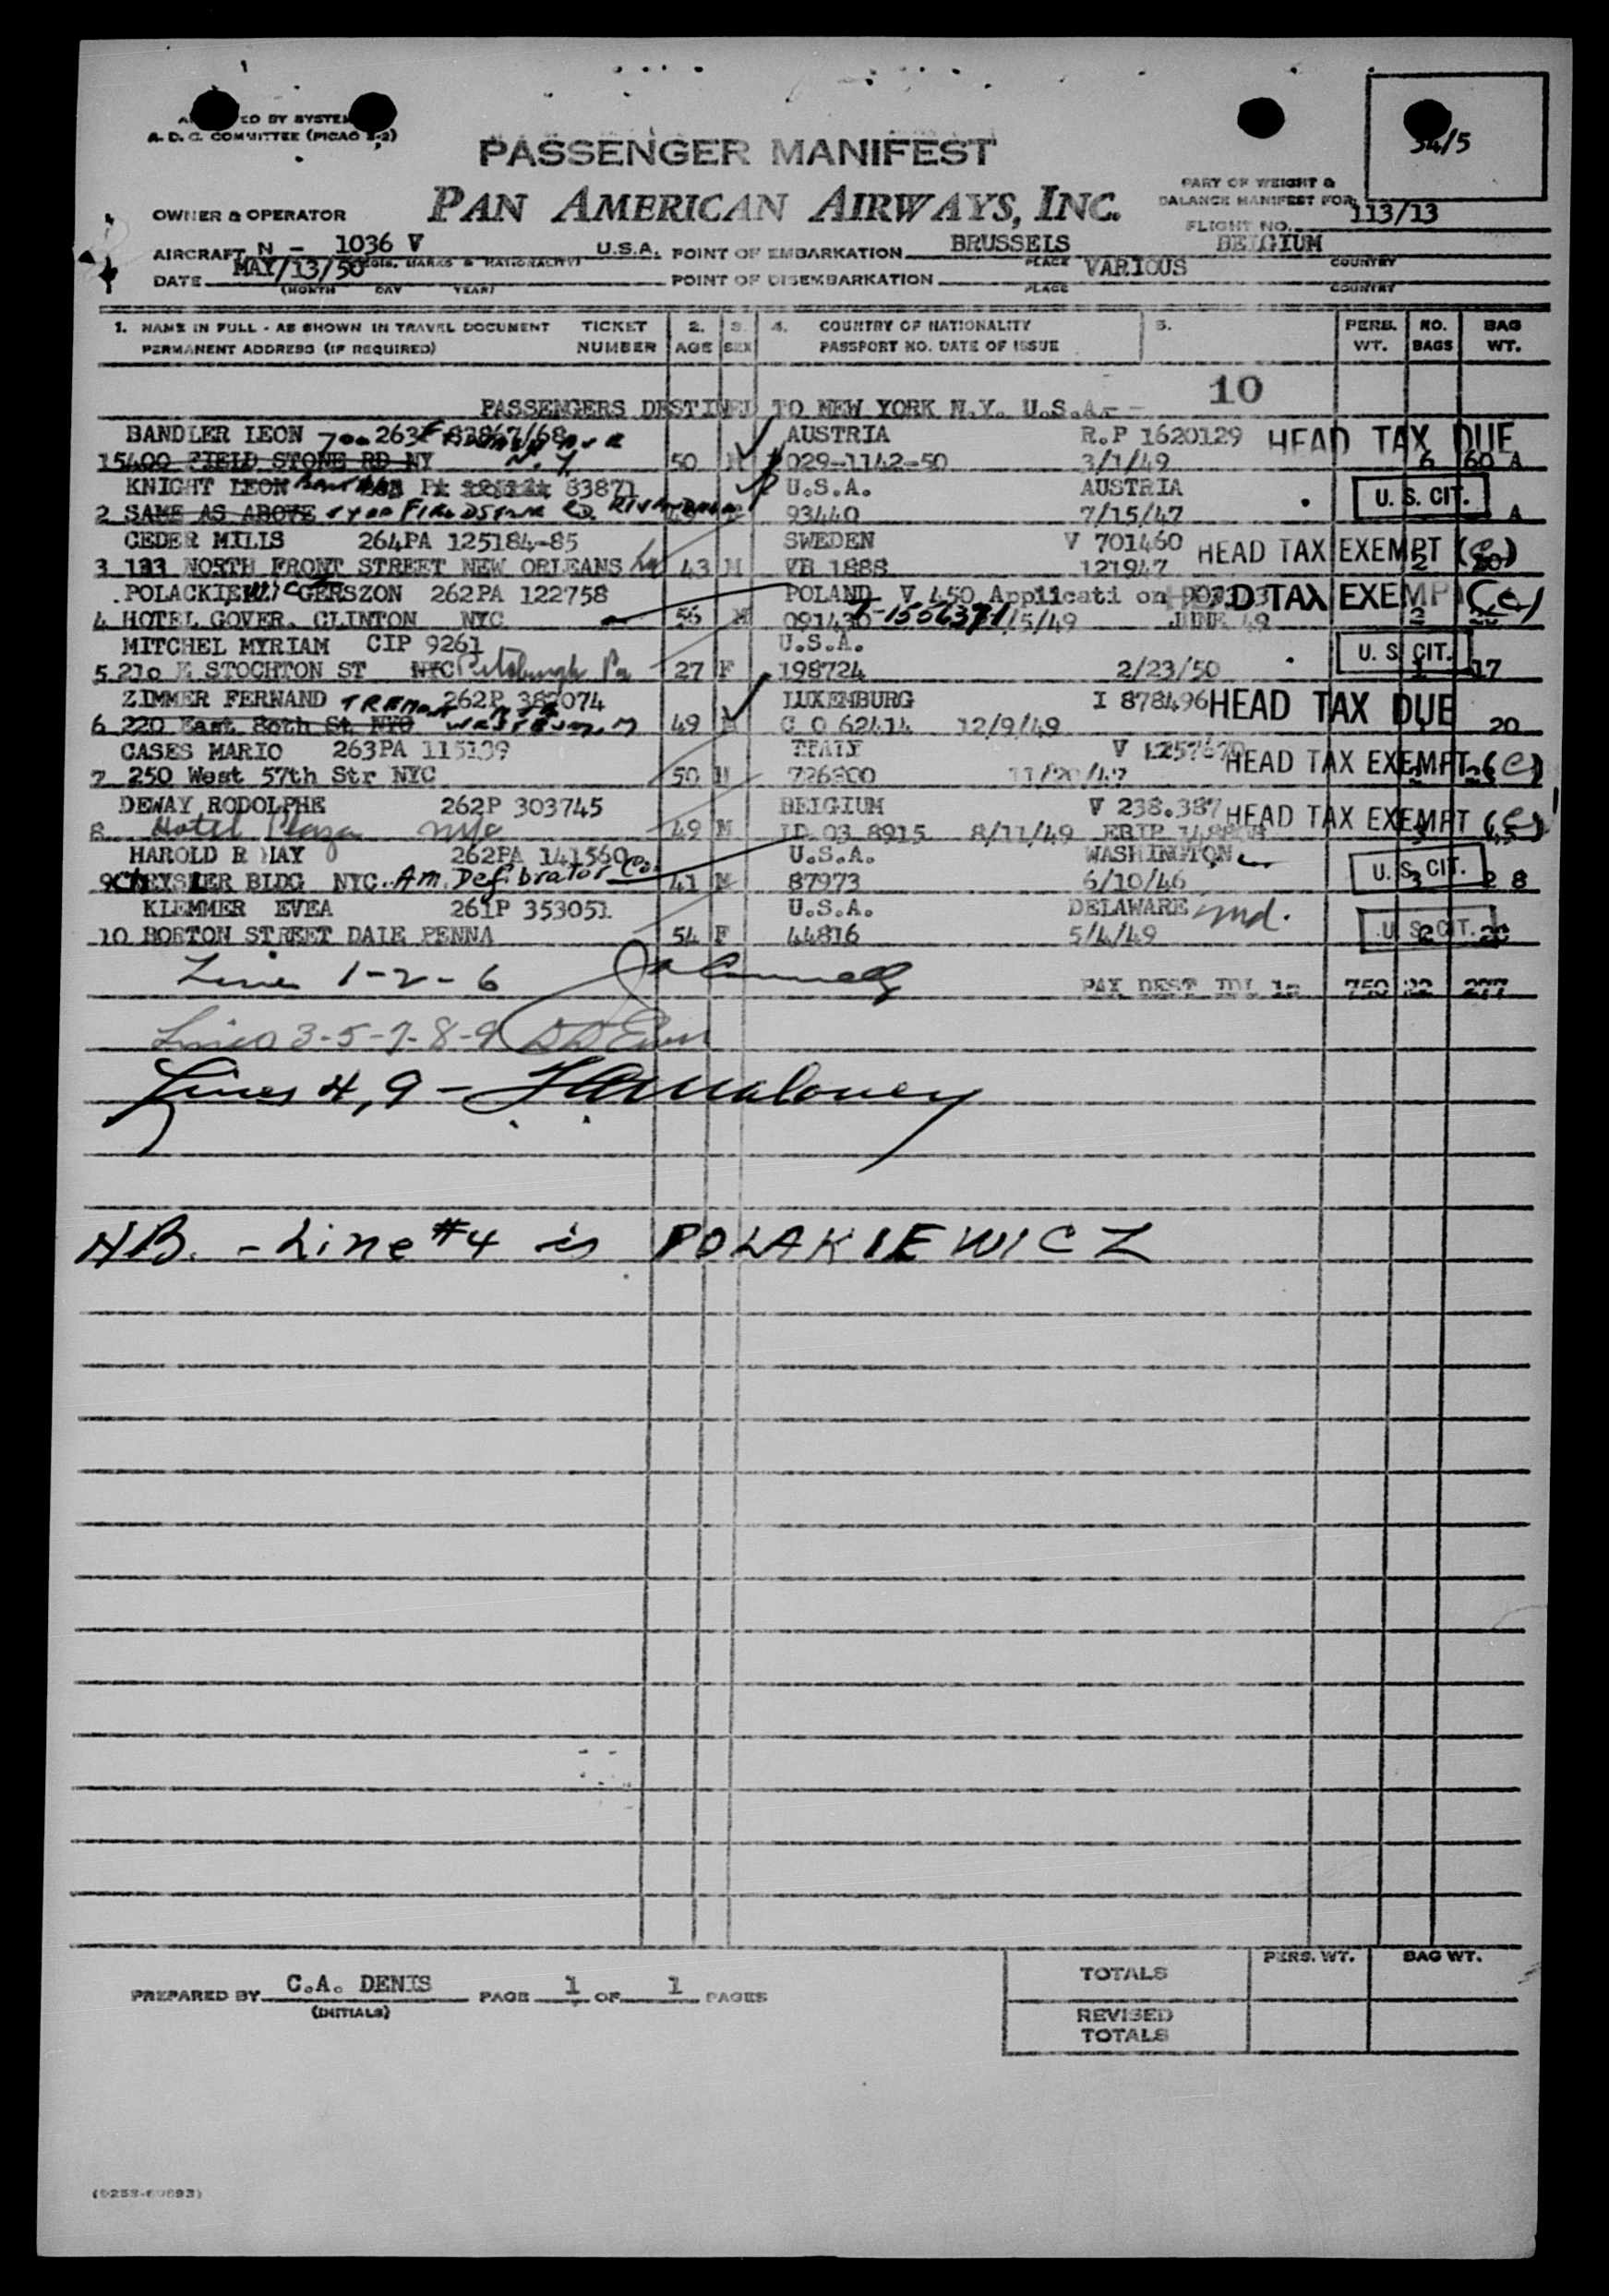 54/5
A. D. C. COMMITTEE (PICAO 3-2)
PASSENGER MANIFEST
PAN AMERICAN AIRWAYS, INC.
PART OF WEIGHT &
BALANCE MANIFEST FOR
FLIGHT NO. 113/13
OWNER & OPERATOR
AIRCRAFT N - 1036 V U.S.A. POINT OF EMBARKATION BRUSSELS BELGIUM
(REGIS. MARKS & NATIONALITY) PLACE COUNTRY
DATE MAY/13/50 POINT OF DISEMBARKATION VARIOUS
(MONTH DAY YEAR) PLACE COUNTRY
1. NAME IN FULL - AS SHOWN IN TRAVEL DOCUMENT TICKET 2. 3. 4. COUNTRY OF NATIONALITY 5. PERS. NO. BAG
PERMANENT ADDRESS (IF REQUIRED) NUMBER AGE SEX PASSPORT NO. DATE OF ISSUE WT. BAGS WT.
PASSENGERS DESTINED TO NEW YORK N.Y. U.S.A.- - 10
BANDLER LEON 700 263P 83867/68 AUSTRIA R.P 1620129 HEAD TAX DUE
1 5400 FIELD STONE RD NY N.Y. 50 M 029-1142-50 3/1/49 6 60 A
KNIGHT LEON 83871 U.S.A. AUSTRIA U. S. CIT.
2 SAME AS ABOVE 5400 FIELDSTONE RD. 93440 7/15/47 A
CEDER MILLS 264PA 125184-85 SWEDEN V 701460 HEAD TAX EXEMPT (e)
3 133 NORTH FRONT STREET NEW ORLEANS La 43 M VR 1888 121947 2
POLACKIEWIC GERSZON 262PA 122758 POLAND V 450 Applicati on HEAD TAX EXEMPT (e)
4 HOTEL GOVER. CLINTON NYC 56 M 091430 JUNE 49 2
MITCHEL MYRIAM CIP 9261 U.S.A.
5 210 E STOCHTON ST NYC Pittsburgh Pa 27 F 198724 2/23/50 U. S. CIT. 1 17
ZIMMER FERNAND 262P 382074 LUXEMBURG I 878496 HEAD TAX DUE
6 220 East 80th St NYC 49 M C O 62414 12/9/49 20
CASES MARIO 263PA 115139 ITALY V HEAD TAX EXEMPT (e)
7 250 West 57th Str NYC 50 M 726800 11/20/47
DEWAY RODOLPHE 262P 303745 BELGIUM V 238.387 HEAD TAX EXEMPT (e)
8 Hotel Plaza NYC 49 M ID 03 8915 8/11/49
HAROLD R MAY 262PA 141560 U.S.A. WASHINGTON U. S. CIT.
9 CHRYSLER BLDG NYC. Am. Defibrator Co. 41 M 87973 6/10/46 3 28
KLEMMER EVEA 261P 353051 U.S.A. DELAWARE Md.
10 BOSTON STREET DALE PENNA 54 F 44816 5/4/49 U. S. CIT. 2 20
Line 1-2-6
PAX DEST IDL 10 750 22 277
Lines 3-5-7-8-9
Lines 4, 9 - Maloney
NB. - Line #4 is POLAKIEWICZ
PREPARED BY C.A. DENIS PAGE 1 OF 1 PAGES
(INITIALS)
PERS. WT. BAG WT.
TOTALS
REVISED
TOTALS